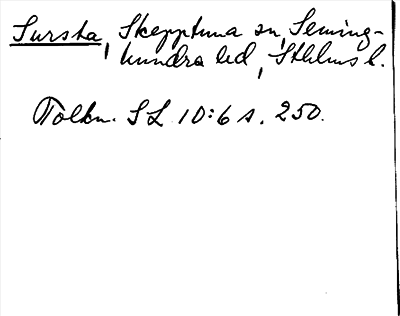 Sursta, Skepptuna sn, Seming-
hundra hd, Sthlms l.
Tolkn. SL 10:6 s. 250.